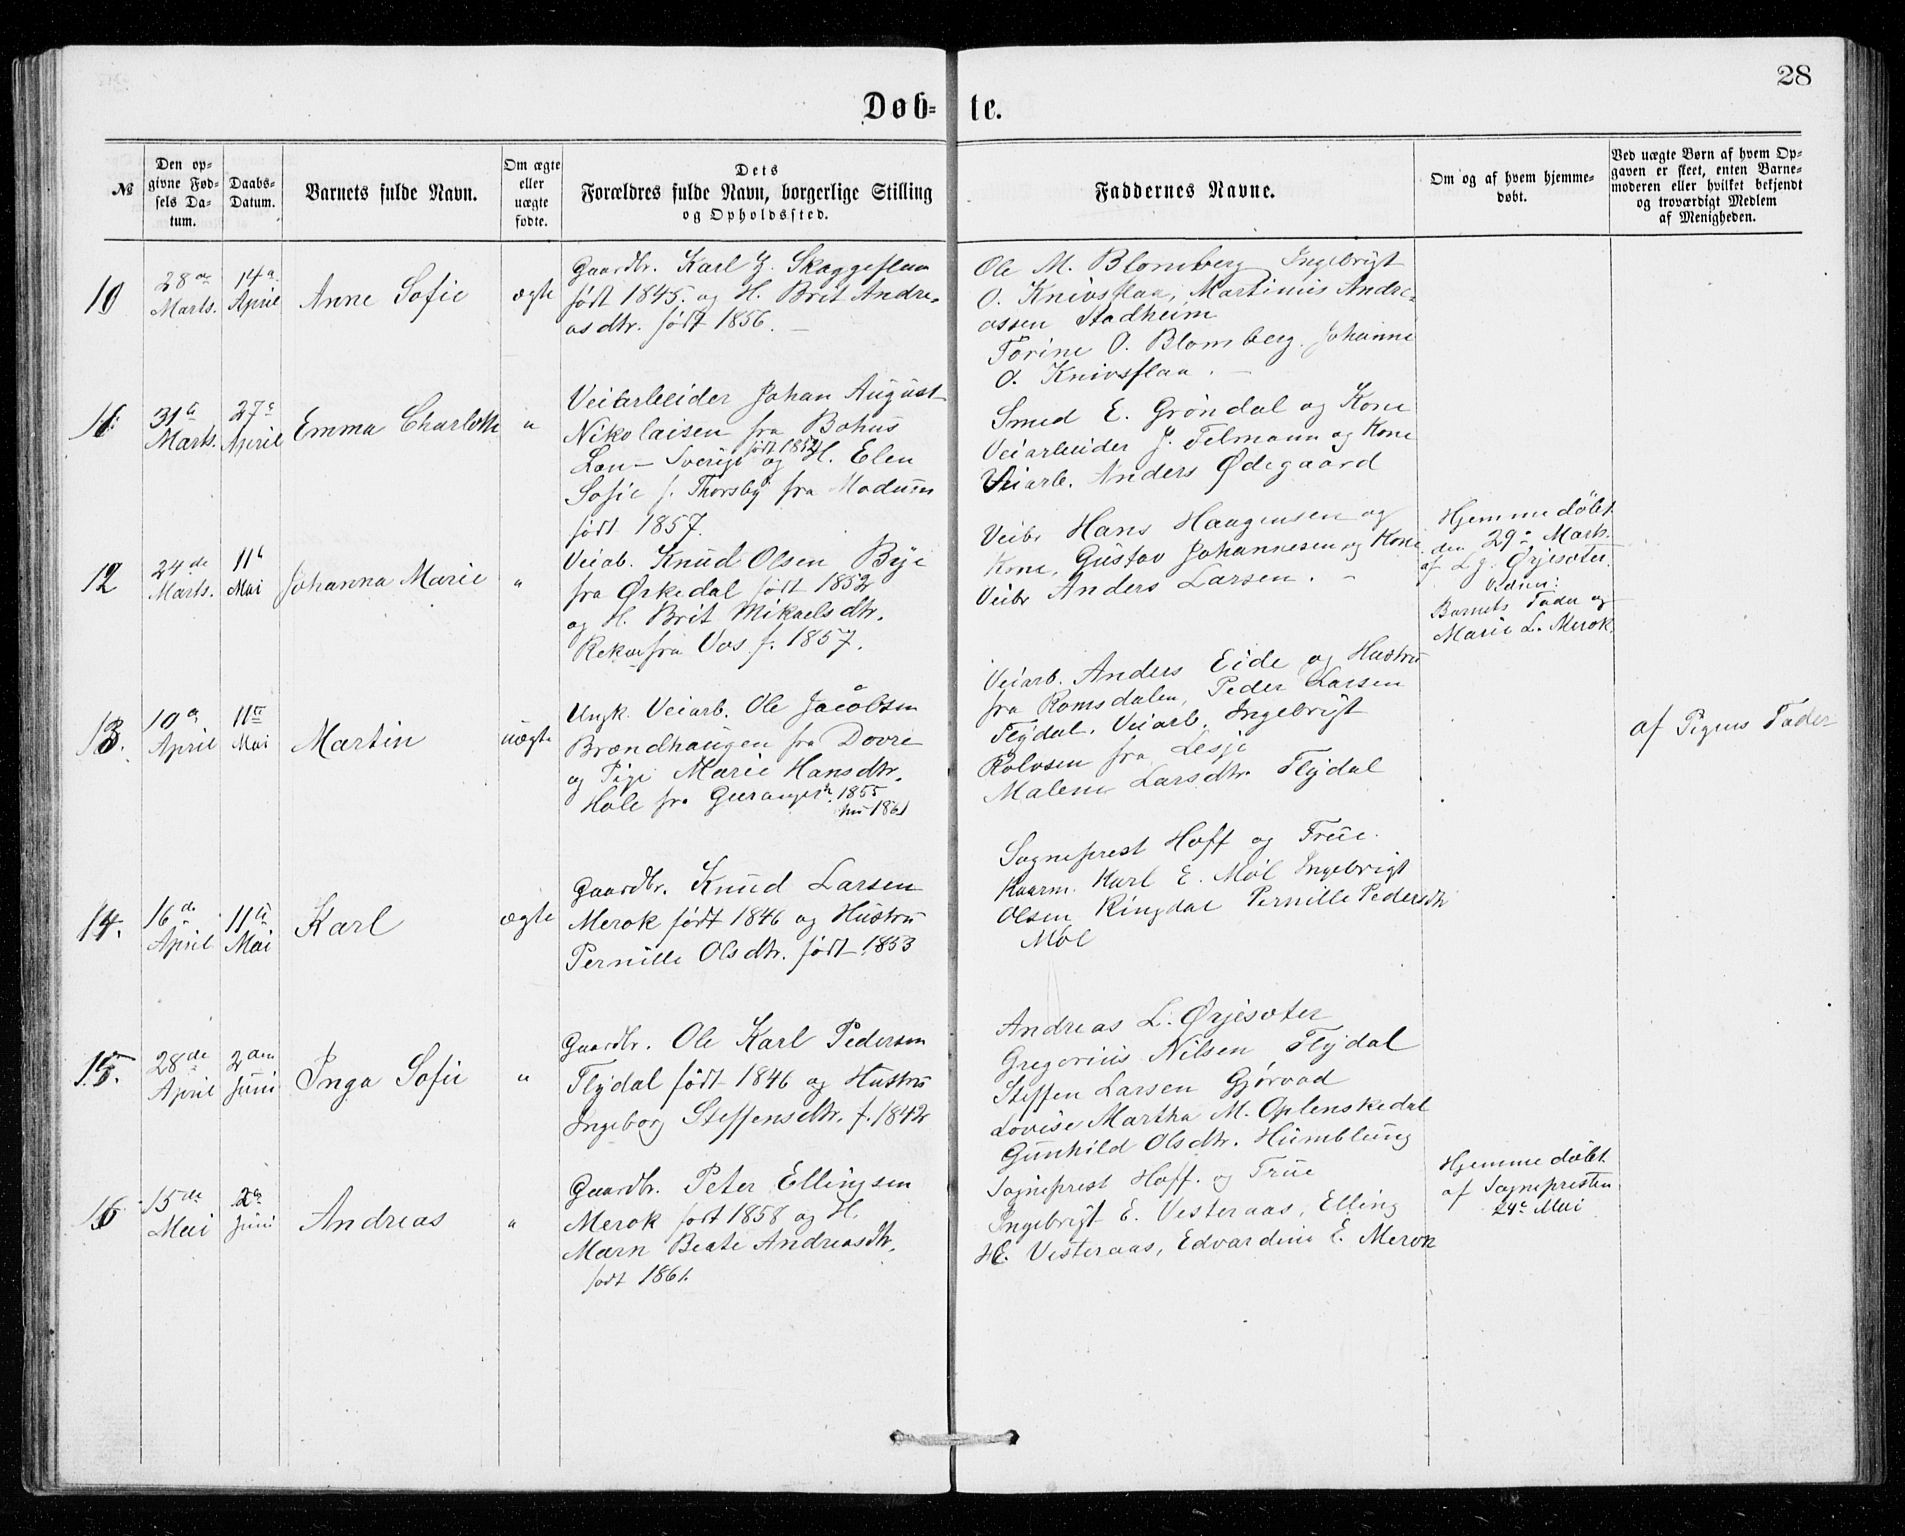 28
Døb- te.
№
Den op-
givne Fød-
sels Da-
tum.
Daabs-
Datum.
Barnets fulde Navn.
Om ægte
eller
uægte
fødte.
Dets
Forældres fulde Navn, borgerlige Stilling
og Opholdssted.
Faddernes Navne.
Om og af hvem hjemme-
døbt.
Ved uægte Børn af hvem Op-
gaven er skeet, enten Barne-
moderen eller hvilket bekjendt
og troværdigt Medlem
af Menigheden.
10
28de
Marts.
14de
April
Anne Sofie
ægte
Gaardbr. Karl J. Skaggeflaa
født 1845. og H. Brit Andre-
asdtr. født 1856. –
Ole M. Blomberg Ingebrigt
O. Knivsflaa, Martinus Andre-
assen Stadheim
Torine O. Blomberg. Johanne
O. Knivsflaa. –
11
31te
Marts.
27de
April
Emma Charlotte
"
Veiarbeider Johan August
Nikolaisen fra Bohus
Len – Sverige født 1852 og H. Elen
Sofie f. Thorsby fra Modum
født 1857.
Smed E. Grøndal og Kone
Veiarbeider J. Telmann og Kone
Veiarb. Anders Ødegaard
12
24de
Marts.
11te
Mai
Johanna Marie
"
Veiab. Knud Olsen Bye
fra Ørkedal født 1852
og H. Brit Mikaelsdtr.
Rekve fra Vos f. 1857.
Veibr Hans Haagensen og
Kone, Gustav Johannesen og Kone
Veibr Anders Larsen. –
Hjemmedøbt
den 29de Marts.
af L. J. Ørjesæter.
Vidne:
Barnets Fader og
Marie L. Merok.
13.
10de
April
11te
Mai
Martin
uægte
Ungk. Veiarb. Ole Jacobsen
Brændhaugen fra Dovre
og Pige Marie Hansdtr.
Hole fra Geiranger. 1855
hun 1861
Veiarb. Anders Eide og Hustru
fra Romsdalen, Peder Larsen
Flydal. Veiarb. Ingebrigt
Rolvsen fra Lesje
Malene Larsdtr. Flydal
af Pigens Fader
14.
16de
April
11te
Mai
Karl
ægte
Gaardbr. Knud Larsen
Merok født 1846 og Hustru
Pernille Olsdtr. født 1853
Sogneprest Hoff og Frue.
Kaarm. Karl E. Møl Ingebrigt
Olsen Ringdal Pernille Pedersdtr
Møl
15.
28de
April
2den
Juni
Inga Sofie
"
Gaardbr. Ole Karl Pedersen
Flydal født 1846 og Hustru
Ingeborg Steffensdtr. f. 1842
Andreas L. Ørjesæter
Gregorius Nilsen Flydal
Steffen Larsen Gjørvad
Lovise Martha M. Oplenskedal
Gunhild Olsdtr. Humblung
16
15de
Mai
2den
Juni
Andreas
"
Gaardbr. Peter Ellingsen
Merok født 1858 og H.
Marn Beate Andreasdtr.
født 1861.
Sogneprest Hoff. og Frue
Ingebrigt E. Vesteraas, Elling
H. Vesteraas, Edvardine E. Merok
Hjemmedøbt
af Sognepresten
24de Mai